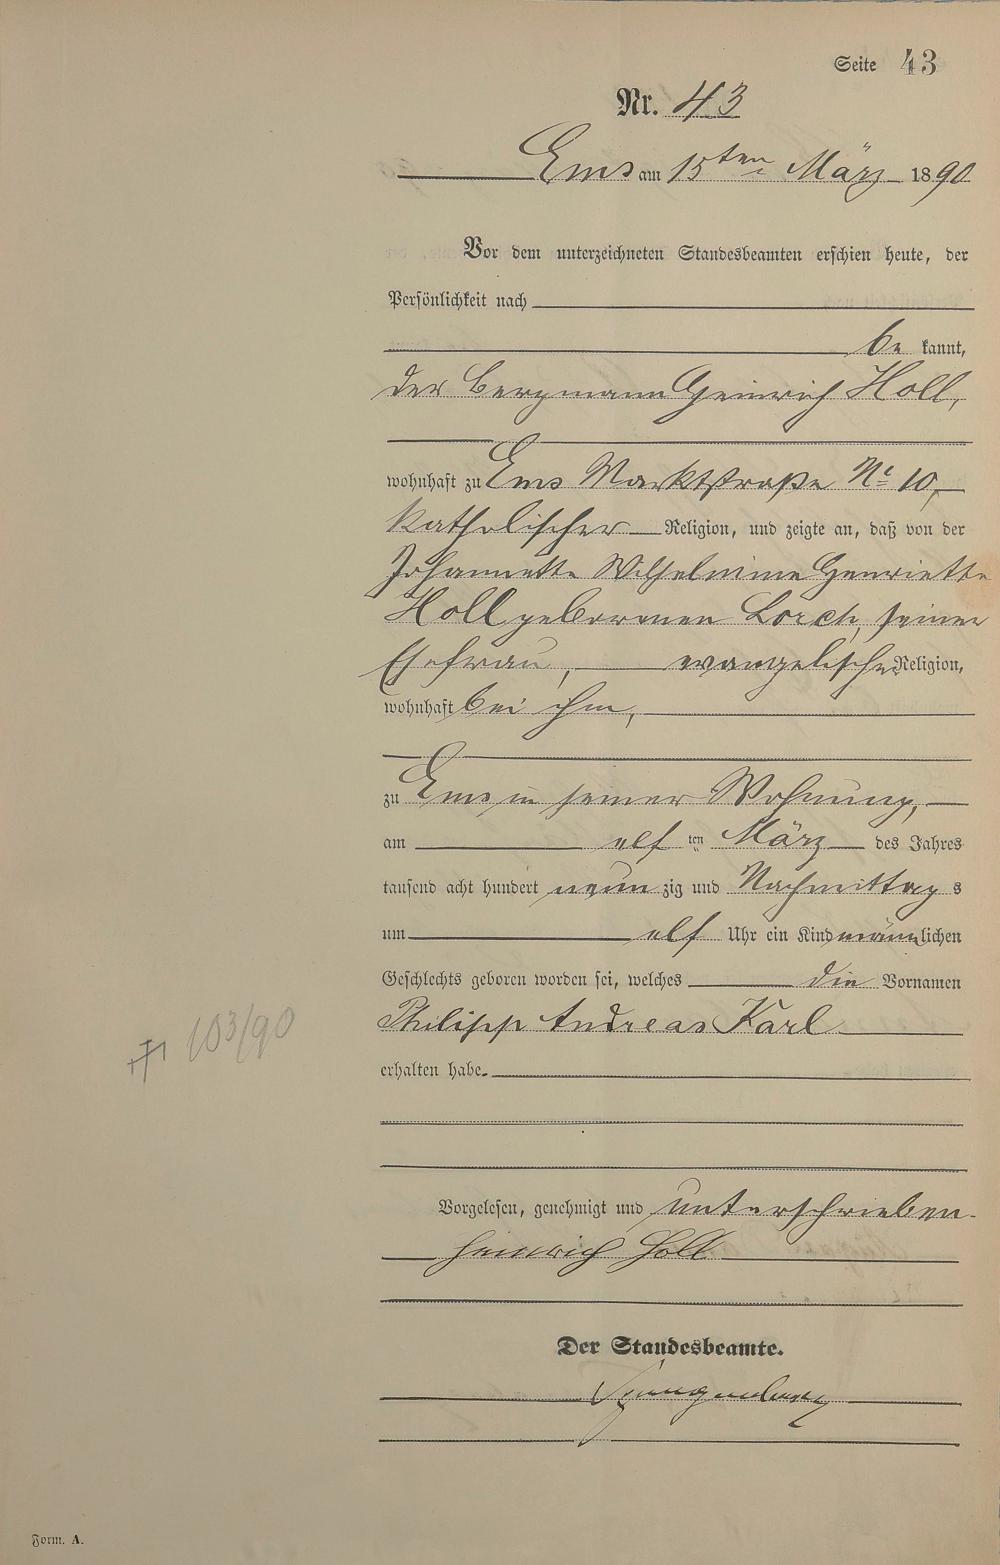 Seite 43
Nr. 43
Ems am 15ten März 1890
Vor dem unterzeichneten Standesbeamten erschien heute, der
Persönlichkeit nach
be kannt,
der Bergmann Heinrich Holl,
wohnhaft zu Ems Marktstraße No 10,
katholischer Religion, und zeigte an, daß von der
Johannette Wilhelmine Henriette
Holl geborenen Lorch, seiner
Ehefrau, evangelischer Religion,
wohnhaft bei ihm,
zu Ems in seiner Wohnung,
am elf ten März des Jahres
tausend acht hundert neun zig und Nachmittag s
um elf Uhr ein Kind männlichen
Geschlechts geboren worden sei, welches die Vornamen
Philipp Andreas Karl
erhalten habe.
103/90
Vorgelesen, genehmigt und unterschrieben.
Heinrich Holl
Der Standesbeamte.
Spangenberg
Form. A.